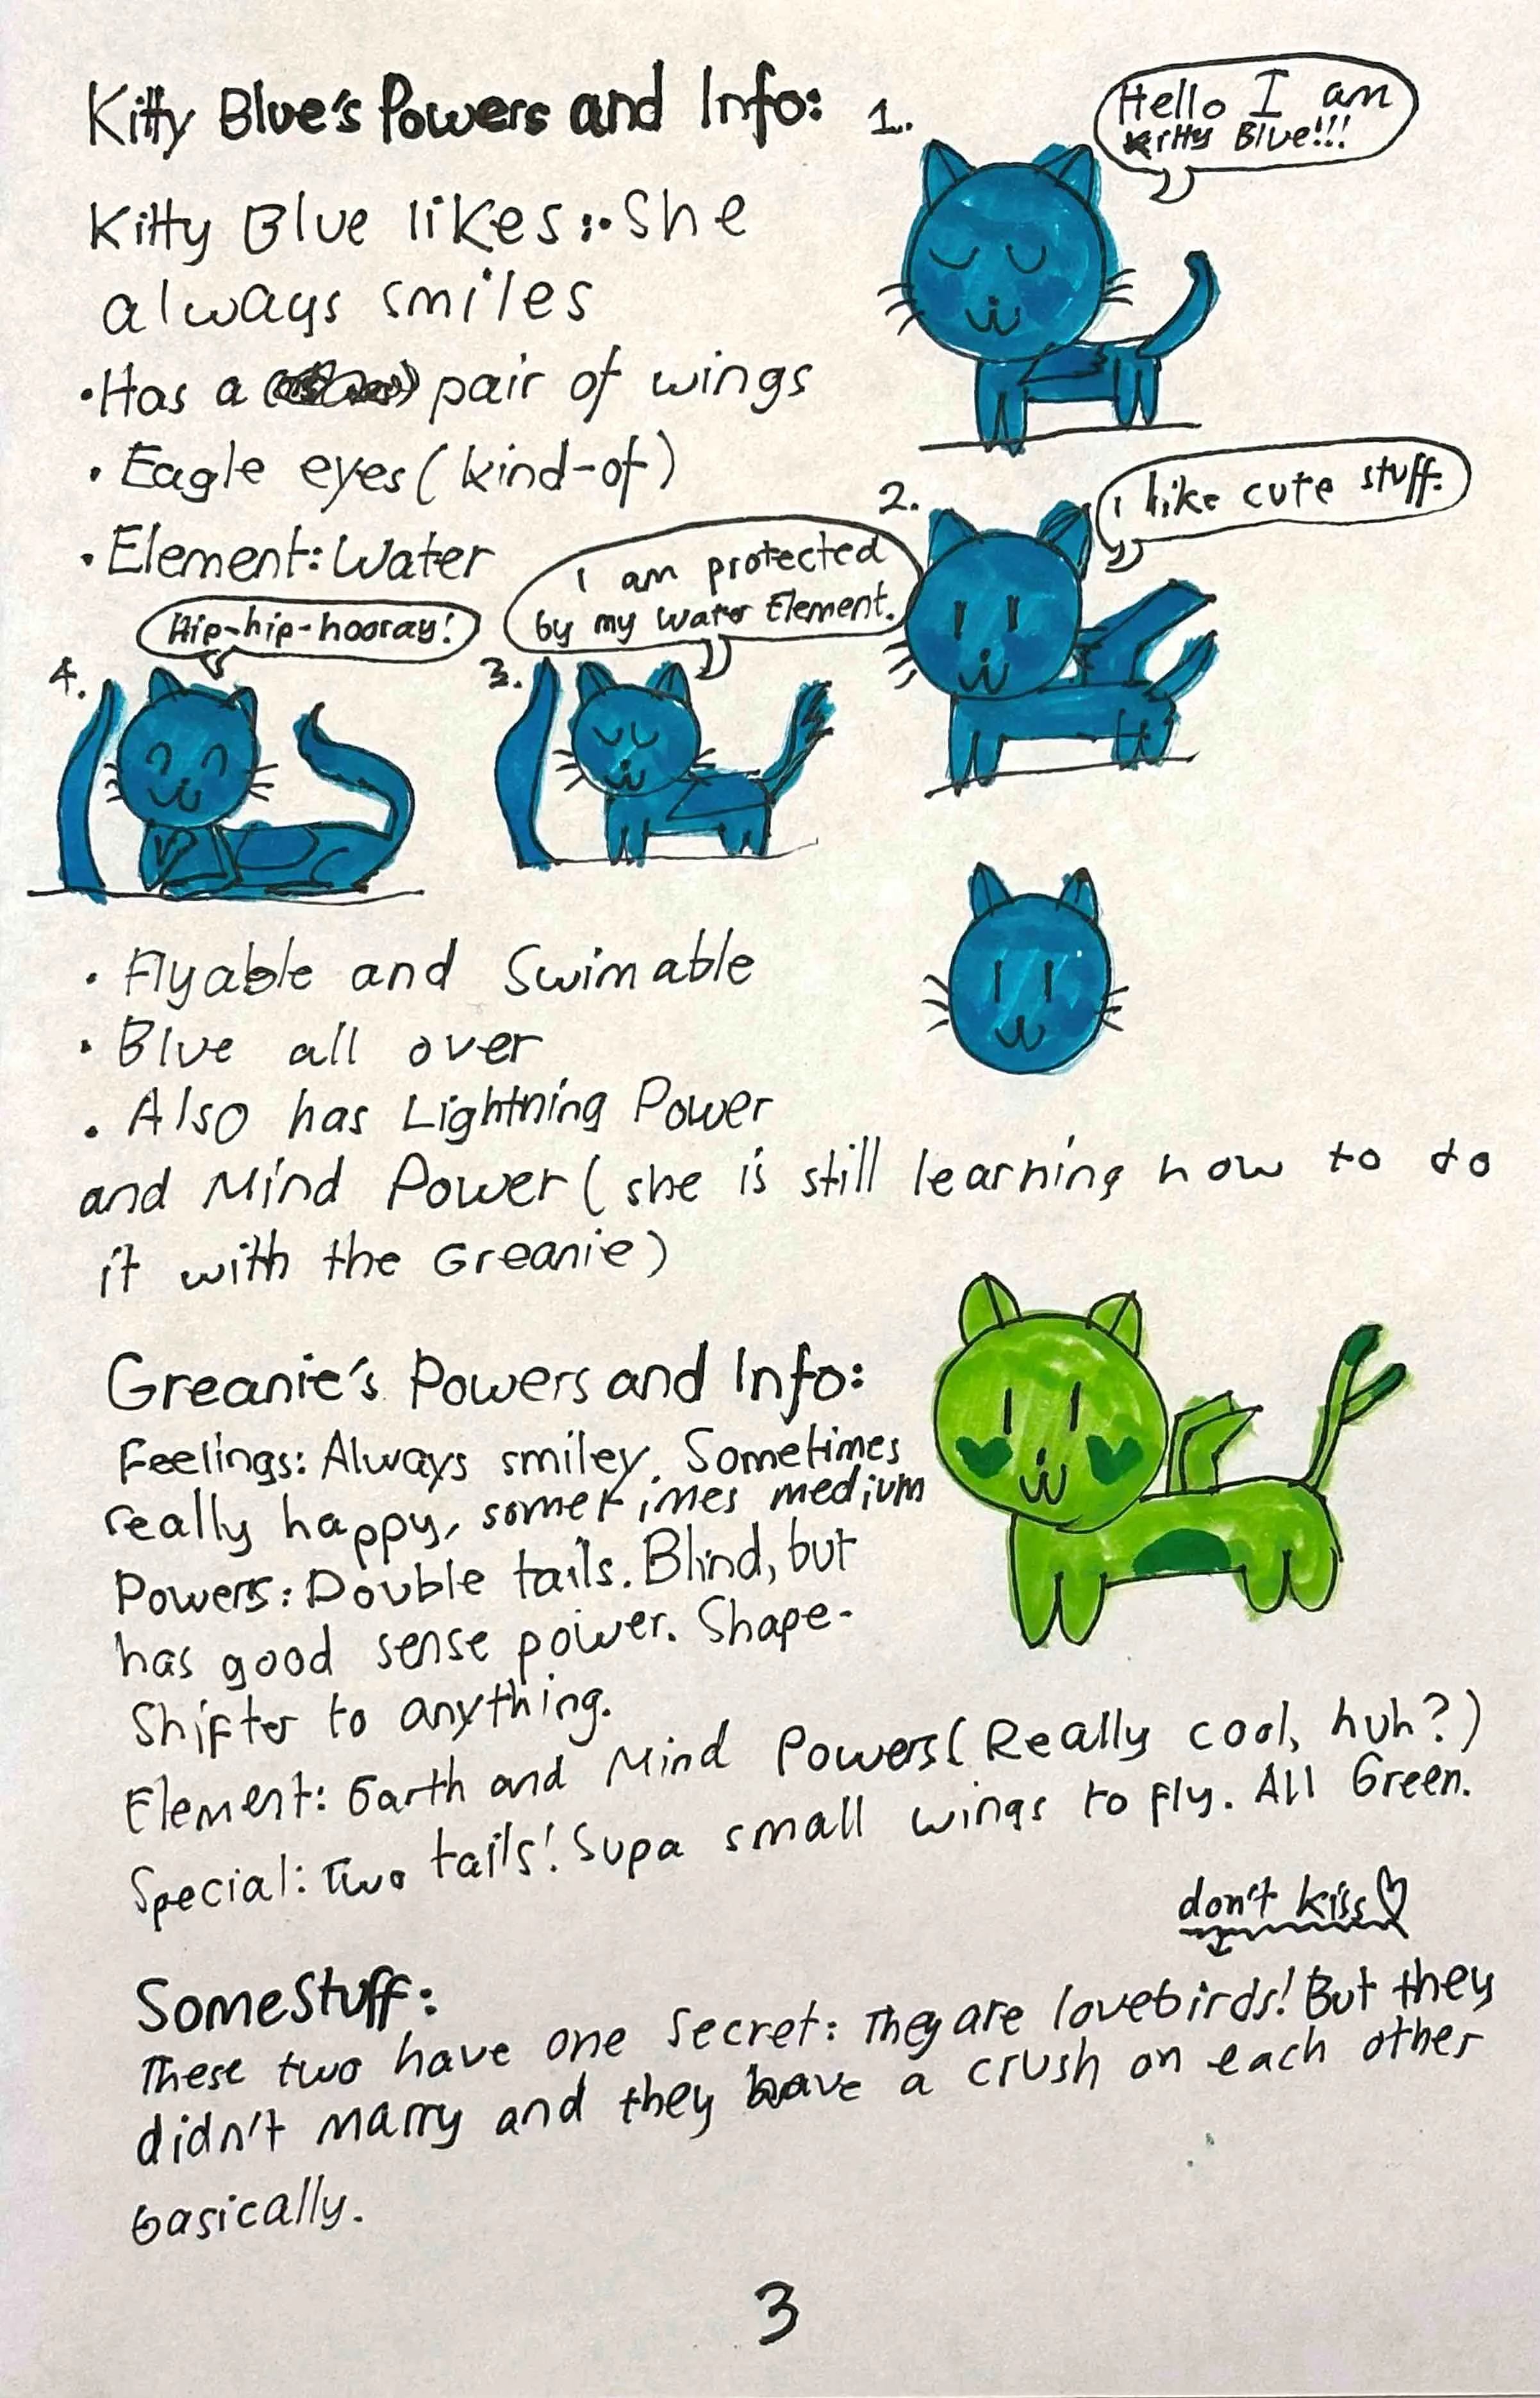 Kitty Blue's Powers and Info:
1.
Hello I am
Kitty Blue!!!
Kitty Blue likes: • She
always smiles
• Has a pair of wings
• Eagle eyes (kind-of)
• Element: Water
2.
I like cute stuff.
3.
I am protected
by my Water Element.
4.
Hip-hip-hooray!
• Flyable and Swimable
• Blue all over
• Also has Lightning Power
and Mind Power (she is still learning how to do
it with the Greanie)
Greanie's Powers and Info:
Feelings: Always smiley. Sometimes
really happy, sometimes medium
Powers: Double tails. Blind, but
has good sense power. Shape-
Shifter to anything.
Element: Earth and Mind Powers (Really cool, huh?)
Special: Two tails! Supa small wings to fly. All Green.
don't kiss♡
Some Stuff:
These two have one secret: They are lovebirds! But they
didn't marry and they have a crush on each other
basically.
3